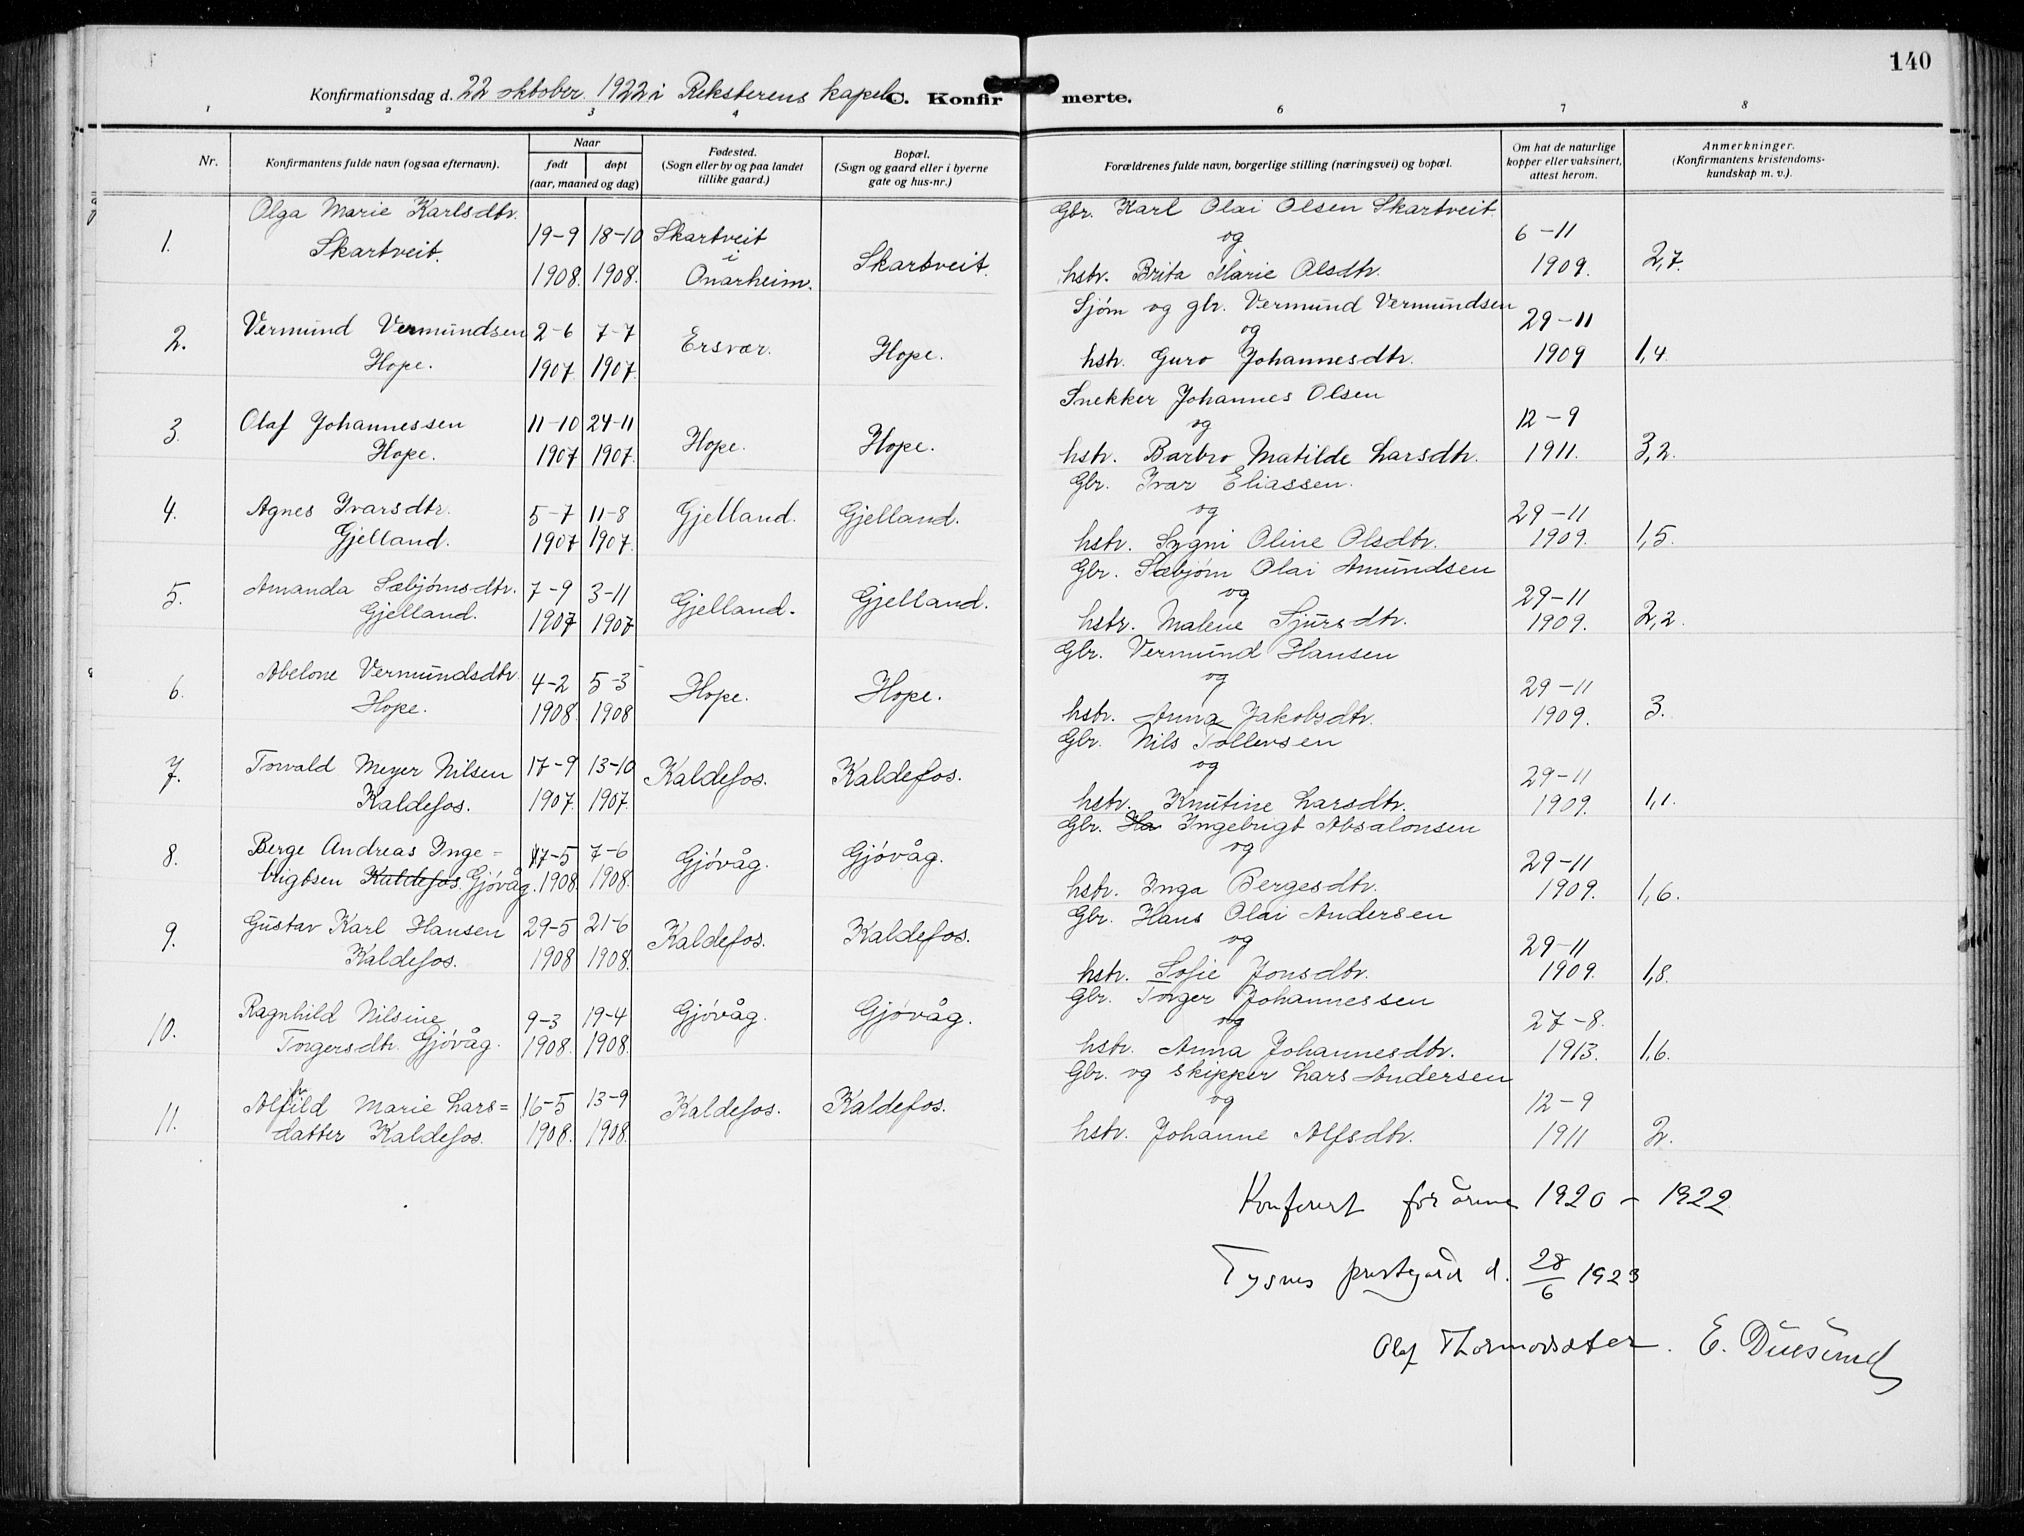 140
Konfirmationsdag d. 22 oktober 1922 i Reksterens kapel. C. Konfirmerte.
1 2 3 4 6 7 8
Nr. Konfirmantens fulde navn (ogsaa efternavn). Naar født døpt (aar, maaned og dag) Fødested. (Sogn eller by og paa landet tillike gaard.) Bopæl. (Sogn og gaard eller i byerne gate og hus-nr.) Forældrenes fulde navn, borgerlige stilling (næringsvei) og bopæl. Om hat de naturlige kopper eller vaksinert, attest herom. Anmerkninger. (Konfirmantens kristendomskundskap m. v.).
Olga Marie Karlsdtr. Gbr. Karl Olai Olsen Skartveit
1. Skartveit. 19-9 18-10 Skartveit og 6-11
1908. 1908. i Onarheim. Skartveit. hstr. Brita Marie Olsdtr. 1909. 2,7.
Vermund Vermundsen 2-6 7-7 Sjøm og gbr. Vermund Vermundsen 29-11
2. Hope. 1907. 1907. Ersvær. Hope. og
hstr. Guro Johannesdtr. 1909 1,4.
Olaf Johannessen 11-10 24-11 Snekker Johannes Olsen 12-9
3. Hope. 1907 1907. Hope. Hope. og
hstr. Barbro Matilde Larsdtr. 1911. 3,2.
4. Agnes Ivarsdtr. 5-7 11-8 Gjelland. Gjelland. Gbr. Ivar Eliassen.
Gjelland. 1907 1907. og 29-11
hstr. Sygni Oline Olsdtr. 1909. 1,5.
5. Amanda Sæbjørnsdtr. 7-9 3-11 Gjelland. Gjelland. Gbr. Sæbjørn Olai Amundsen
Gjelland. 1907 1907 og 29-11
hstr. Malene Sjursdtr. 1909. 2,2.
6. Abelone Vermundsdtr. 4-2 5-3 Hope. Hope. Gbr. Vermund Hansen
Hope. 1908. 1908 og 29-11
hstr. Anna Jakobsdtr. 1909. 3.
7. Torvald Meyer Nilsen 17-9 13-10 Kaldefos. Kaldefos. Gbr. Nils Tollevsen
Kaldefos. 1907. 1907. og 29-11
hstr. Knutine Larsdtr. 1909. 1,1.
8. Berge Andreas Inge- 17-5 7-6 Gjøvåg. Gjøvåg. Gbr. Ha Ingebrigt Absalonsen
brigtsen Kaldefos. Gjøvåg. 1908. 1908. og 29-11
hstr. Inga Bergesdtr. 1909. 1,6.
9. Gustav Karl Hansen 29-5 21-6 Kaldefos. Kaldefos. Gbr. Hans Olai Andersen
Kaldefos. 1908 1908. og 29-11
hstr. Sofie Jonsdtr. 1909. 1,8.
10. Ragnhild Nilsine 9-3 19-4 Gjøvåg. Gjøvåg. Gbr. Torger Johannessen
Torgersdtr. Gjøvåg. 1908. 1908. og 27-8.
hstr. Anna Johannesdtr. 1913. 1,6.
11. Alfhild Marie Lars= 16-5 13-9 Kaldefos. Kaldefos. Gbr. og skipper Lars Andersen
datter Kaldefos. 1908. 1908. og 12-9
hstr. Johanne Alfsdtr. 1911 2.
Konferert for årene 1920 - 1922
Tysnes prestegård d. 28/6 1923
Olaf Thormodsæter. E. Duesund